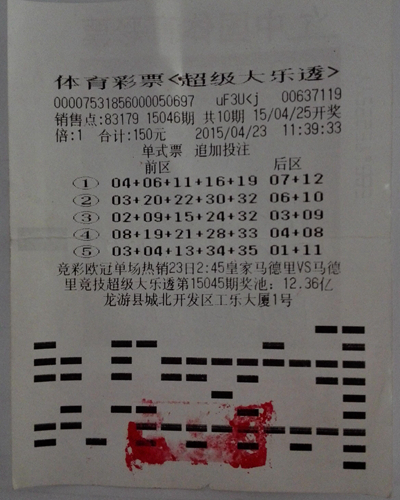 体育彩票<超级大乐透>
00007531856000050697 uF3U<j 00637119
销售点:83179 15046期 共10期 15/04/25开奖
倍:1 合计:150元 2015/04/23 11:39:33
单式票 追加投注
前区 后区
① 04+06+11+16+19 07+12
② 03+20+22+30+32 06+10
③ 02+09+15+24+32 03+09
④ 08+19+21+28+33 04+08
⑤ 03+04+13+34+35 01+11
竞彩欧冠单场热销23日2:45皇家马德里VS马德
里竞技超级大乐透第15045期奖池: 12.36亿
龙游县城北开发区工乐大厦1号